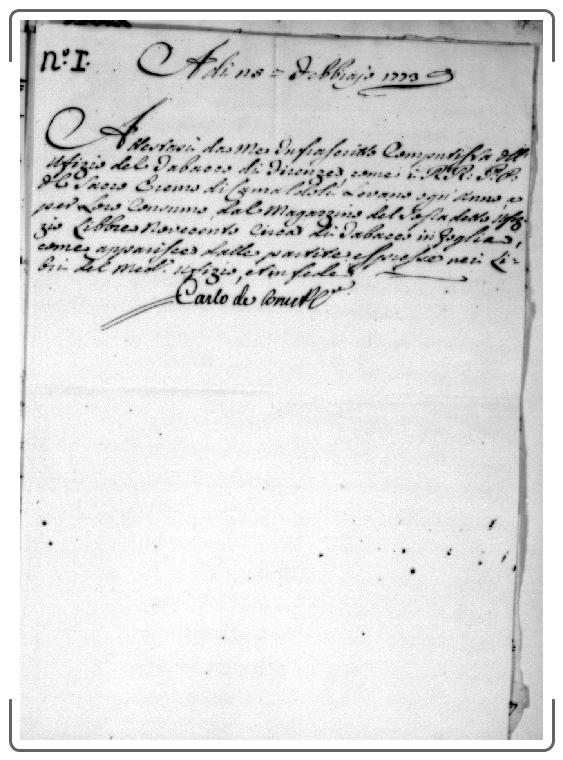 N.º I.
Adi 18 = Febbrajo 1773
Attestasi da Me Infrascritto Computista dell'
Ufizio del Tabacco di Firenze come i RR. PP.
del Sacro Eremo di Camaldoli Levano ogni Anno e
per Loro Consumo dal Magazzino del Sopradetto Ufi-
zio Libbre Novecento Circa di Tabacco in Foglia,
come apparisce dalle partite espresse nei Li-
bri del Med.º Ufizio, et in fede
Carlo de